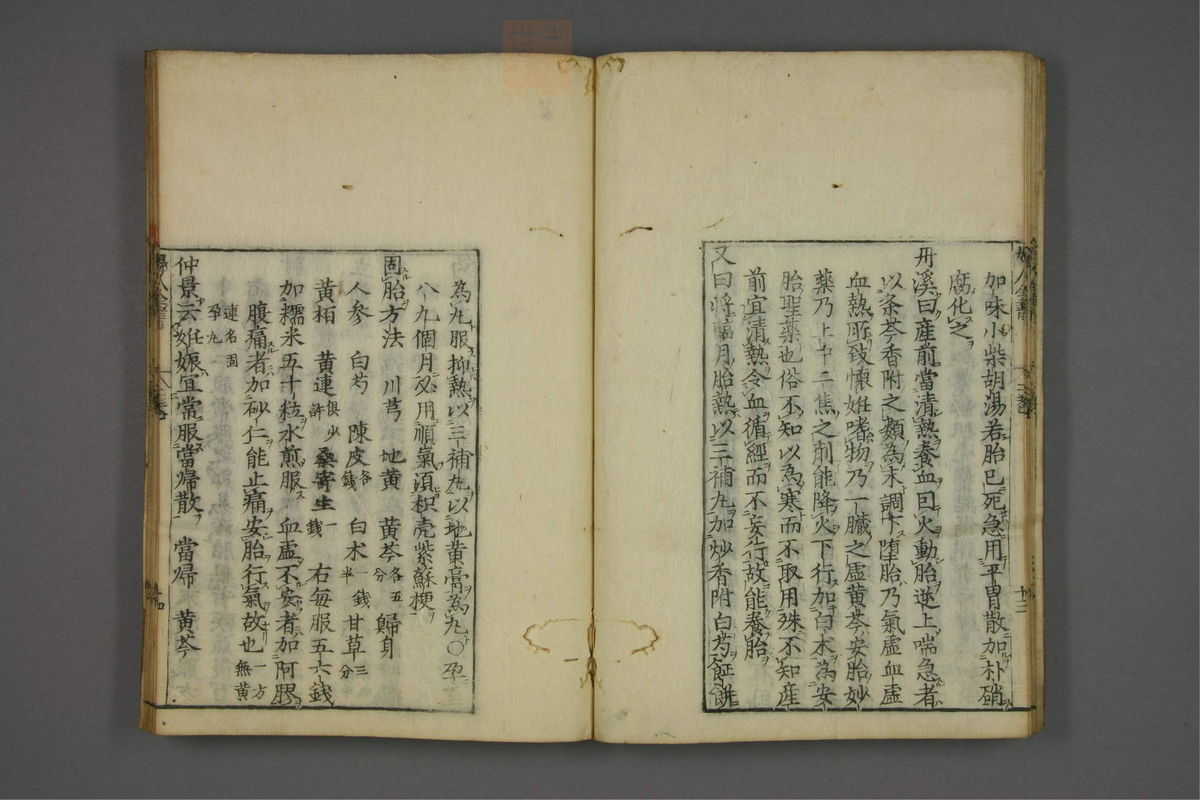 加味小柴胡湯若胎已死急用平胃散加朴硝
腐化之
丹溪曰産前當清熱養血曰火動胎逆上喘急者
以条芩香附之類為末調下墮胎乃氣虚血虚
血熱所致懷姙嗜物乃一臓之虚黄芩安胎妙
藥乃上中二焦之剤能降火下行加白朮為安
胎聖藥也俗不知以為寒而不取用殊不知産
前宜清熱令血循經而不妄行故能養胎
又曰將臨月胎熱以三補丸加炒香附白芍飪餅
為丸服抑熱以三補丸以地黄膏為丸〇孕
八九個月必用順氣須枳殻紫蘇梗
固胎方法 川芎 地黄 黄芩各五分 歸身
人參 白芍 陳皮各一錢 白朮一錢半 甘草三分
黄栢 黄連俱少許 桑寄生一錢 右毎服五六錢
加糯米五十粒水煎服 血虚不安者加阿膠
腹痛者加砂仁能止痛安胎行氣故也一方無黄
連名固孕丸
仲景云姙娠宜常服當歸散 當歸 黄芩